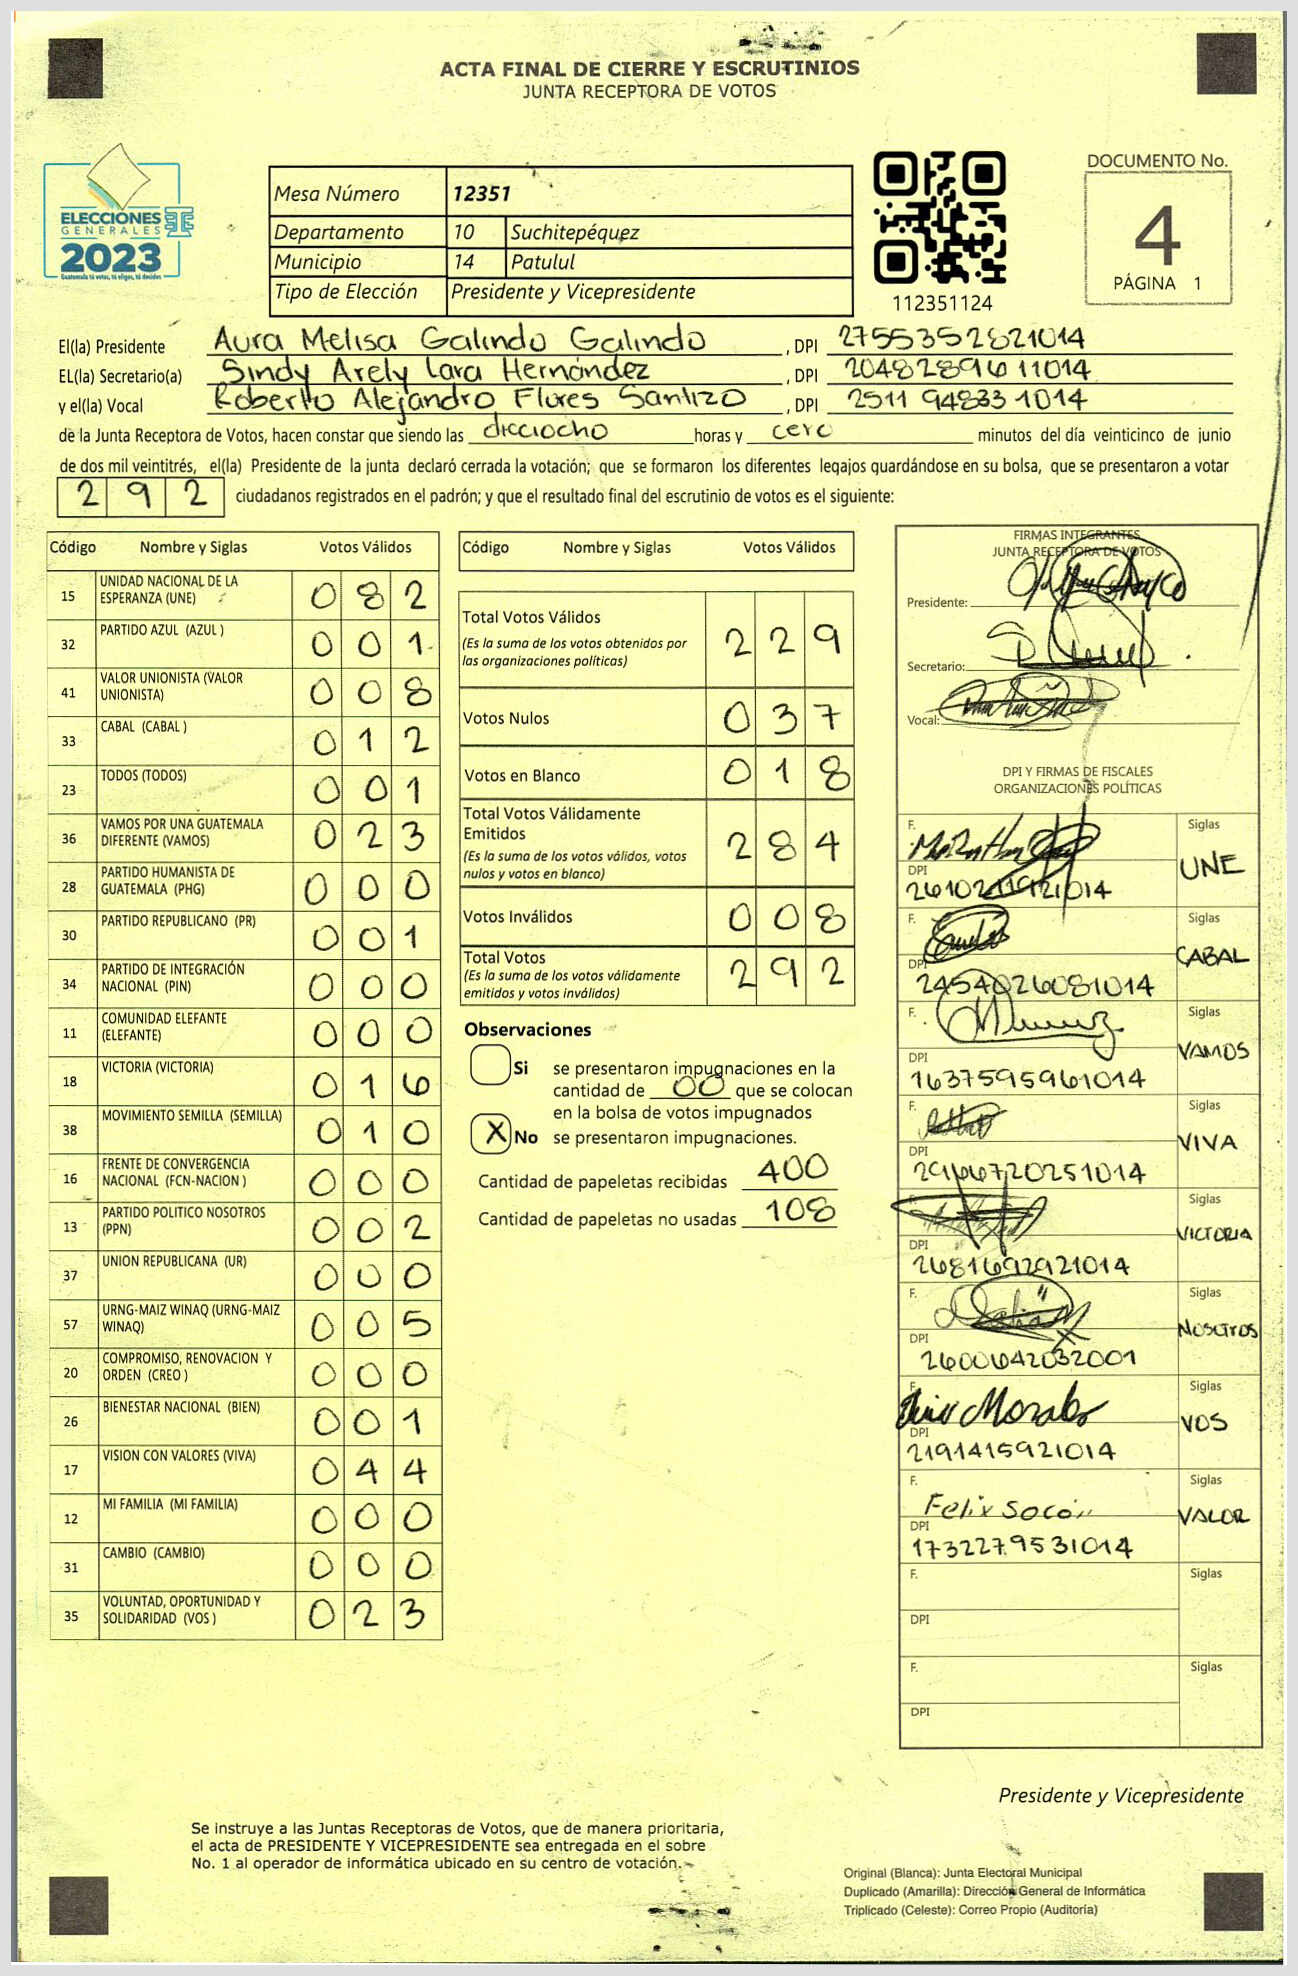 ACTA FINAL DE CIERRE Y ESCRUTINIOS
JUNTA RECEPTORA DE VOTOS
ELECCIONES
GENERALES
2023
Guatemala tú votas, tú eliges, tú decides
Mesa Número 12351
Departamento 10 Suchitepéquez
Municipio 14 Patulul
Tipo de Elección Presidente y Vicepresidente
112351124
DOCUMENTO No.
4
PÁGINA 1
El(la) Presidente Aura Melisa Galindo Galindo, DPI 2755352821014
EL(la) Secretario(a) Sindy Arely Lara Hernández, DPI 2048289611014
y el(la) Vocal Roberto Alejandro Flores Santizo, DPI 2511 94833 1014
de la Junta Receptora de Votos, hacen constar que siendo las dieciocho horas y cero minutos del día veinticinco de junio
de dos mil veintitrés, el(la) Presidente de la junta declaró cerrada la votación; que se formaron los diferentes legajos guardándose en su bolsa, que se presentaron a votar
292 ciudadanos registrados en el padrón; y que el resultado final del escrutinio de votos es el siguiente:
Código Nombre y Siglas Votos Válidos
15 UNIDAD NACIONAL DE LA ESPERANZA (UNE) 082
32 PARTIDO AZUL (AZUL ) 001
41 VALOR UNIONISTA (VALOR UNIONISTA) 008
33 CABAL (CABAL ) 012
23 TODOS (TODOS) 001
36 VAMOS POR UNA GUATEMALA DIFERENTE (VAMOS) 023
28 PARTIDO HUMANISTA DE GUATEMALA (PHG) 000
30 PARTIDO REPUBLICANO (PR) 001
34 PARTIDO DE INTEGRACIÓN NACIONAL (PIN) 000
11 COMUNIDAD ELEFANTE (ELEFANTE) 000
18 VICTORIA (VICTORIA) 016
38 MOVIMIENTO SEMILLA (SEMILLA) 010
16 FRENTE DE CONVERGENCIA NACIONAL (FCN-NACION ) 000
13 PARTIDO POLITICO NOSOTROS (PPN) 002
37 UNION REPUBLICANA (UR) 000
57 URNG-MAIZ WINAQ (URNG-MAIZ WINAQ) 005
20 COMPROMISO, RENOVACION Y ORDEN (CREO ) 000
26 BIENESTAR NACIONAL (BIEN) 001
17 VISION CON VALORES (VIVA) 044
12 MI FAMILIA (MI FAMILIA) 000
31 CAMBIO (CAMBIO) 000
35 VOLUNTAD, OPORTUNIDAD Y SOLIDARIDAD (VOS ) 023
Código Nombre y Siglas Votos Válidos
Total Votos Válidos 229
(Es la suma de los votos obtenidos por las organizaciones políticas)
Votos Nulos 037
Votos en Blanco 018
Total Votos Válidamente Emitidos 284
(Es la suma de los votos válidos, votos nulos y votos en blanco)
Votos Inválidos 008
Total Votos 292
(Es la suma de los votos válidamente emitidos y votos inválidos)
Observaciones
Si se presentaron impugnaciones en la
cantidad de 00 que se colocan
en la bolsa de votos impugnados
X No se presentaron impugnaciones.
Cantidad de papeletas recibidas 400
Cantidad de papeletas no usadas 108
FIRMAS INTEGRANTES
JUNTA RECEPTORA DE VOTOS
Presidente:
Secretario:
Vocal:
DPI Y FIRMAS DE FISCALES
ORGANIZACIONES POLÍTICAS
F. Siglas UNE
DPI
F. Siglas CABAL
DPI 2454026081014
F. Siglas VAMOS
DPI 1637595961014
F. Siglas VIVA
DPI 2966720251014
F. Siglas VICTORIA
DPI 2681692921014
F. Siglas NOSOTROS
DPI 2600642032001
F. Luis Morales Siglas VOS
DPI 2191415921014
F. Felix Socón Siglas VALOR
DPI 1732279531014
F. Siglas
DPI
F. Siglas
DPI
Presidente y Vicepresidente
Se instruye a las Juntas Receptoras de Votos, que de manera prioritaria,
el acta de PRESIDENTE Y VICEPRESIDENTE sea entregada en el sobre
No. 1 al operador de informática ubicado en su centro de votación.
Original (Blanca): Junta Electoral Municipal
Duplicado (Amarilla): Dirección General de Informática
Triplicado (Celeste): Correo Propio (Auditoría)